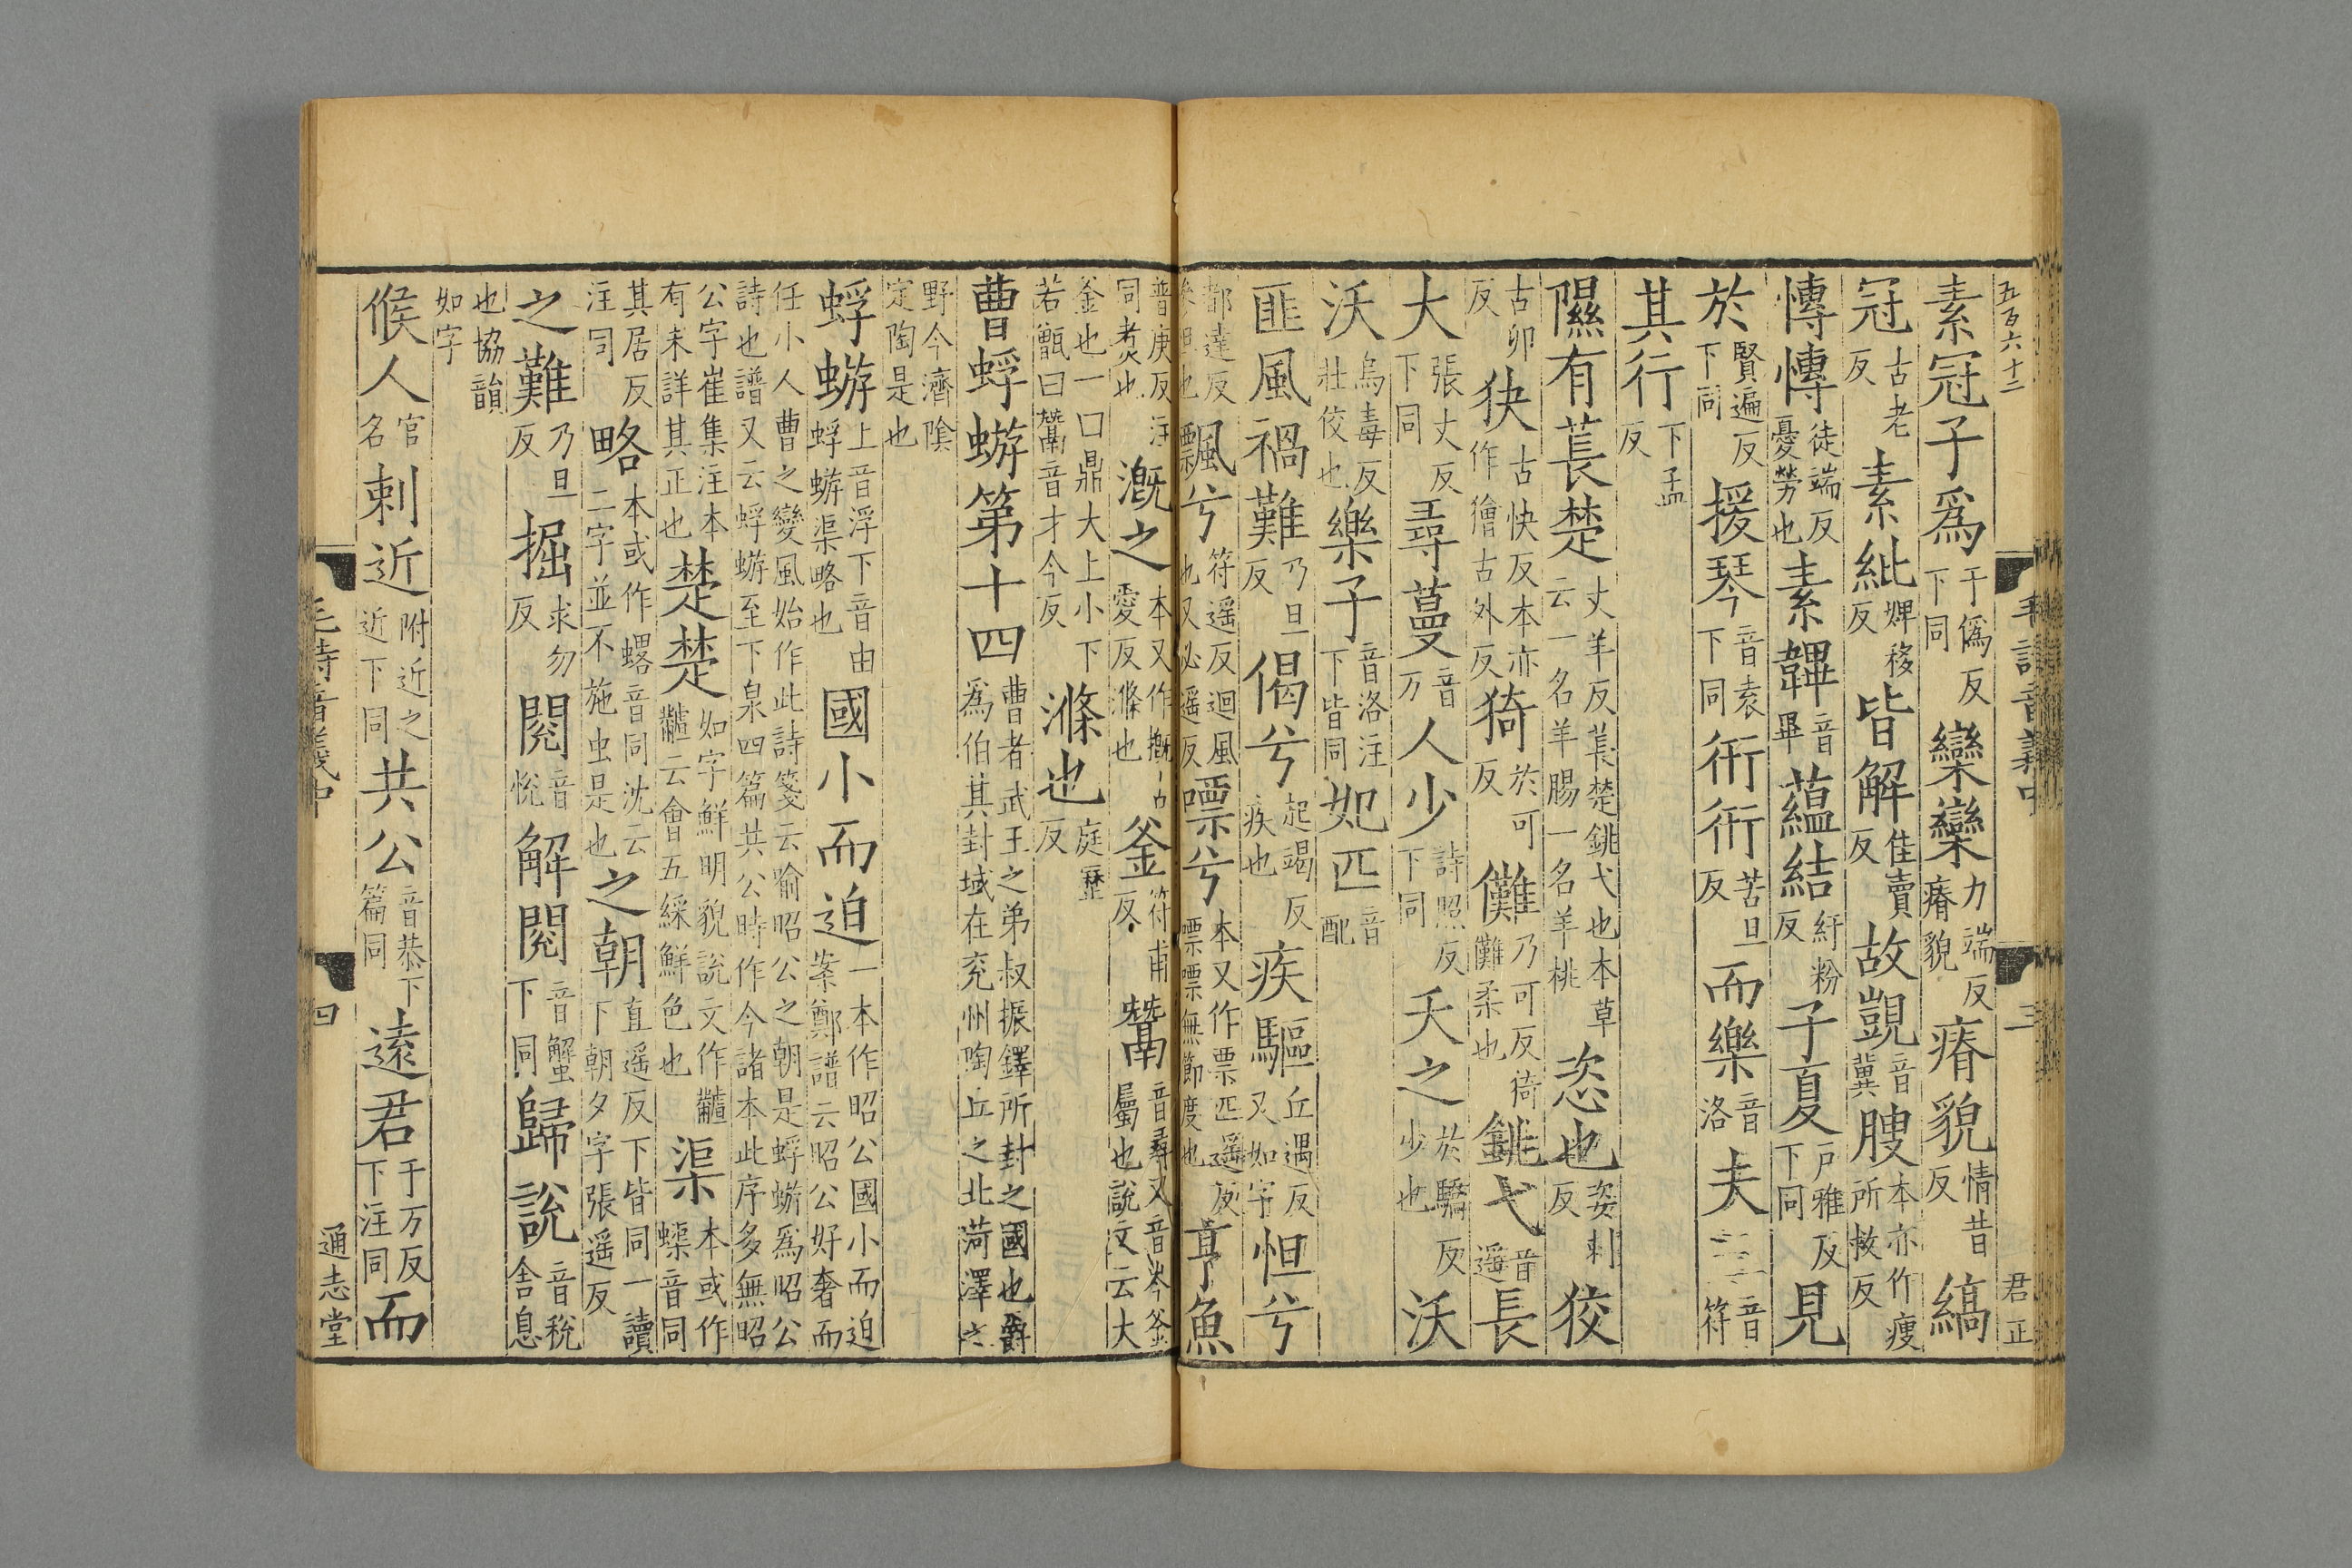 五百六十二 毛詩音義中 三 君正
素冠子為于偽反下同欒欒力端反瘠貌瘠貌情昔反縞
冠古老反素紕婢移反皆解佳賣反故覬音冀膄本亦作瘦所救反
慱慱徒端反憂勞也素韠音畢蘊結紆粉反子夏戶雅反下同見
於賢遍反下同援琴音袁下同衎衎苦旦反而樂音洛夫三音符
其行下孟反
隰有萇楚丈羊反萇楚銚弋也本草云一名羊腸一名羊桃恣也姿利反狡
古卯反㹟古快反本亦作獪古外反猗於可反儺乃可反猗儺柔也銚弋音遥長
大張丈反下同尋蔓音万人少詩照反下同夭之於驕反少也沃
沃烏毒反壯佼也樂子音洛注下皆同妃匹音配
匪風禍難乃旦反偈兮起竭反疾也疾驅丘遇反又如字怛兮
都達反慘怛也飄兮符遥反迴風也又必遥反嘌兮本又作票匹遥反嘌嘌無節度也亨魚
普庚反注同煑也溉之本又作摡古愛反滌也釜符甫反鬵音尋又音岑釜屬也說文云大
釜也一曰鼎大上小下若甑曰鬵音才今反滌也庭歷反
曹蜉蝣第十四曹者武王之弟叔振鐸所封之國也爵為伯其封域在兖州陶丘之北菏澤之
野今濟陰定陶是也
蜉蝣上音浮下音由蜉蝣渠略也國小而迫一本作昭公國小而迫案鄭譜云昭公好奢而
任小人曹之變風始作此詩箋云喻昭公之朝是蜉蝣為昭公詩也譜又云蜉蝣至下泉四篇共公時作今諸本此序多無昭
公字崔集注本有未詳其正也楚楚如字鮮明貌說文作䪨䪨云會五綵鮮色也渠本或作蟝音同
其居反注同略本或作䗉音同沈云二字並不施虫是也之朝直遥反下皆同一讀下朝夕字張遥反
之難乃旦反掘求勿反閱音悅解閱音蟹下同歸說音稅舍息
也協韻如字
候人官名刺近附近之近下同共公音恭下篇同遠君于万反下注同而
毛詩音義中 四 通志堂